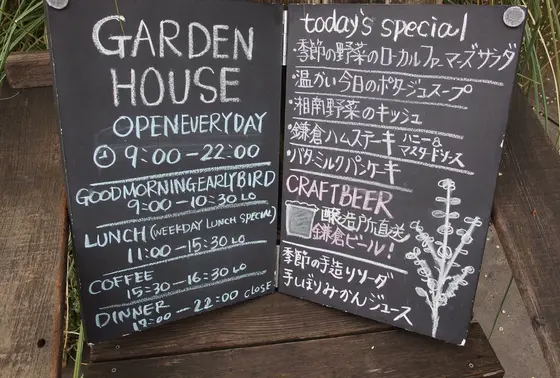 GARDEN
HOUSE
OPEN EVERYDAY
9:00-22:00
GOOD MORNING EARLY BIRD
9:00-10:30 LO
LUNCH (WEEKDAY LUNCH SPECIAL)
11:00-15:30 LO
COFFEE
15:30-16:30 LO
DINNER
-22:00 CLOSE
today's special
・季節の野菜のローカルファーマーズサラダ
・温かい今日のポタージュスープ
・湘南野菜のキッシュ
・鎌倉ハムステーキ ハニー&マスタードソース
・バターミルクパンケーキ
CRAFT BEER
醸造所直送
鎌倉ビール!
季節の手造りソーダ
手しぼりみかんジュース